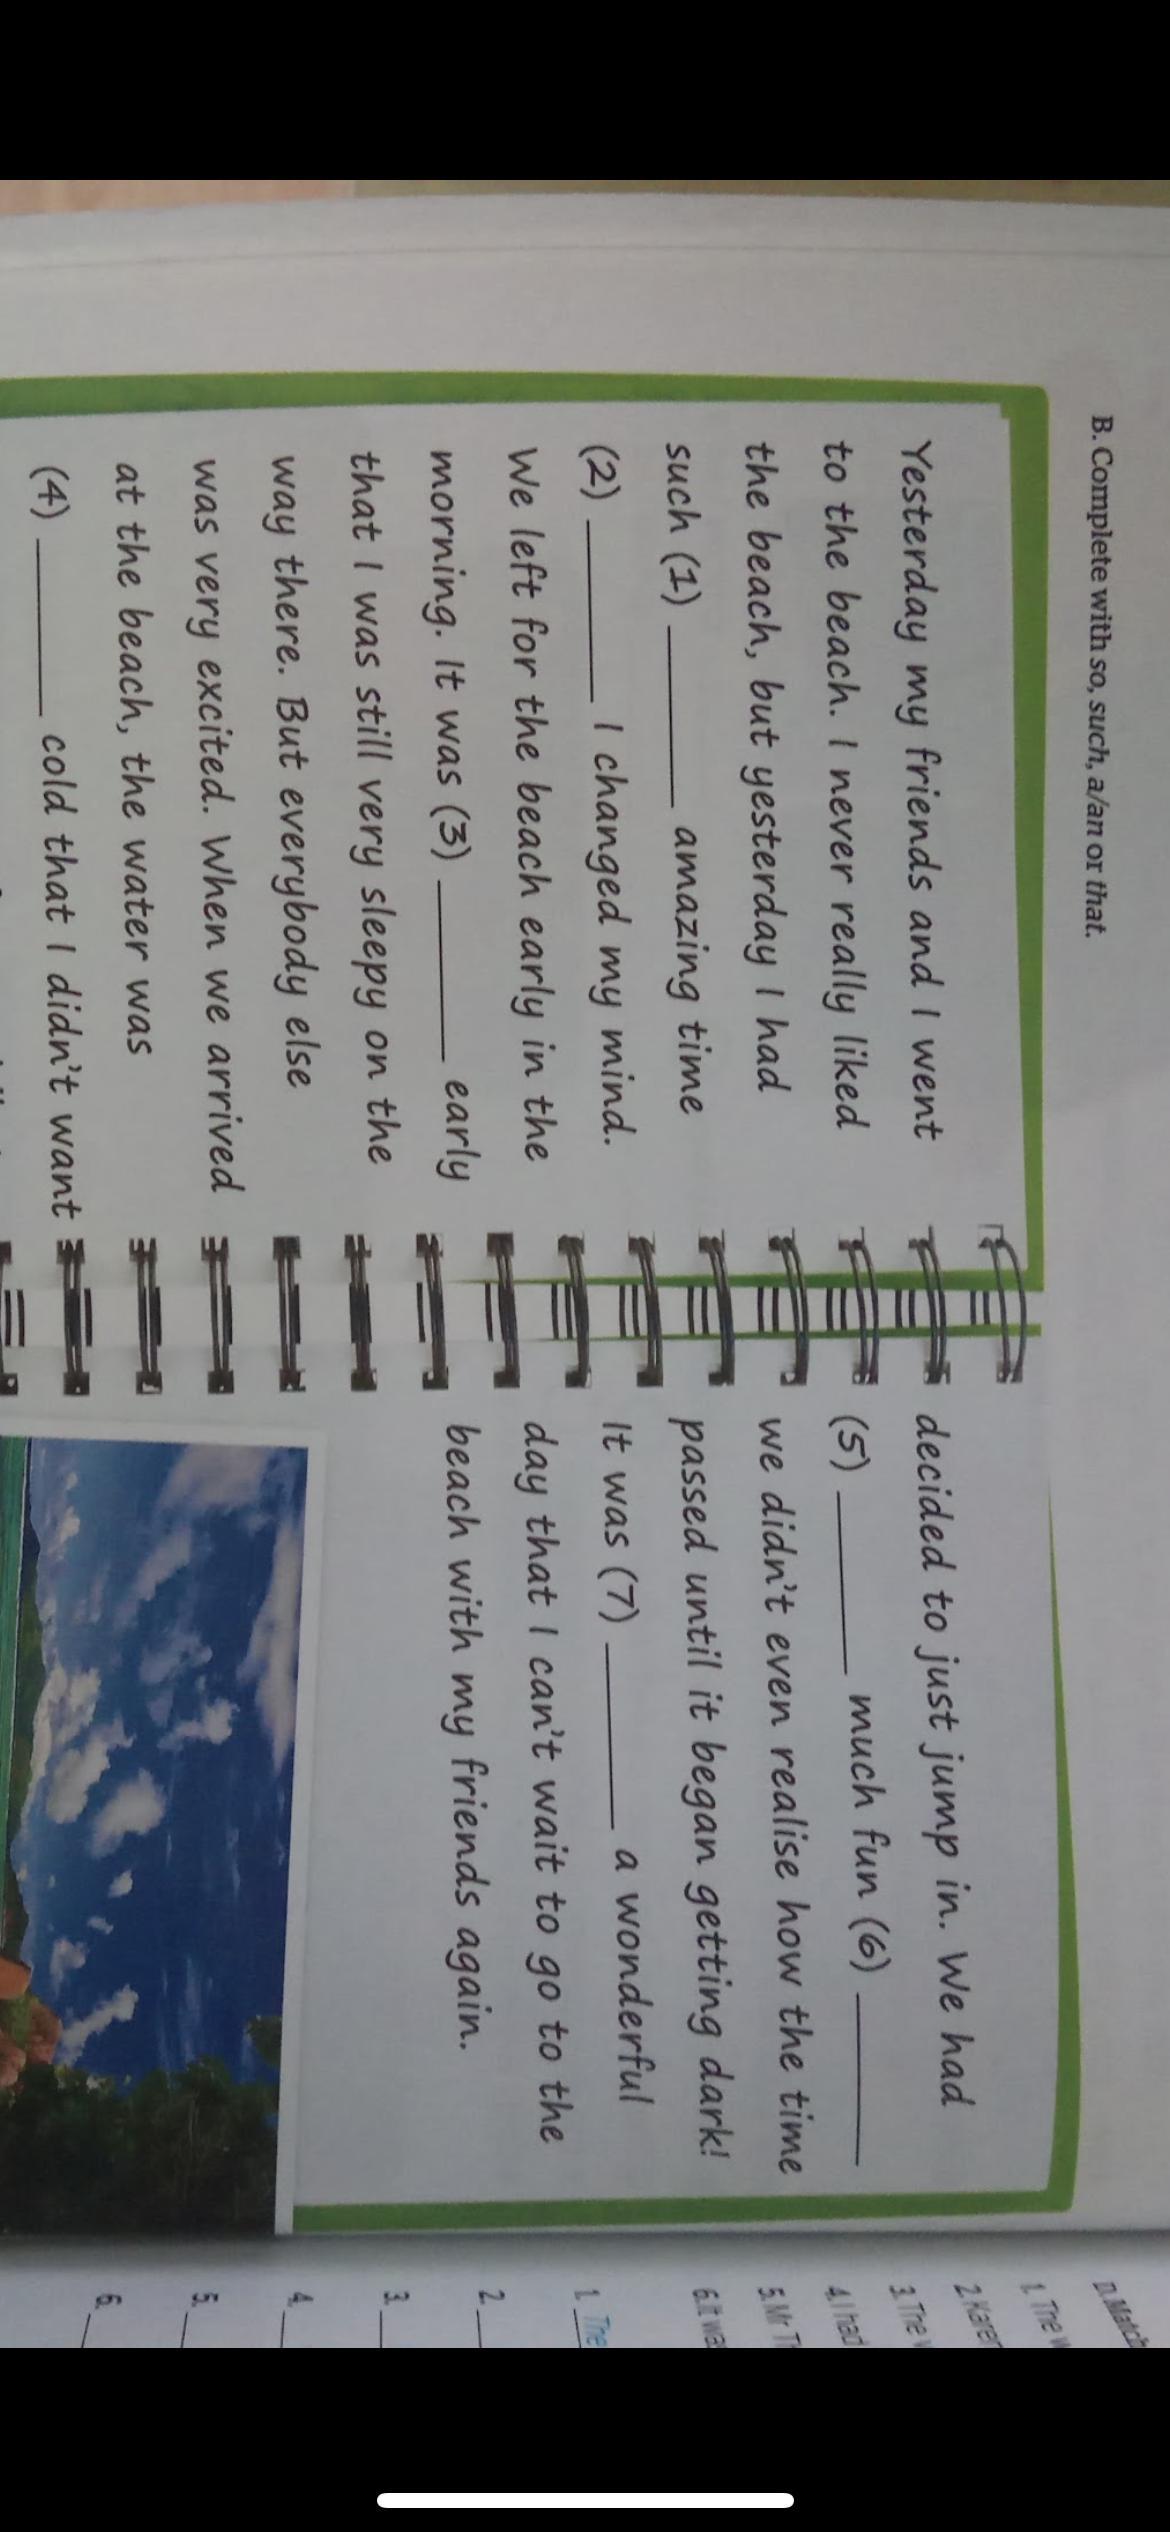 B. Complete with so, such, a/an or that.
Yesterday my friends and I went
to the beach. I never really liked
the beach, but yesterday I had
such (1) ________ amazing time
(2) ________ I changed my mind.
We left for the beach early in the
morning. It was (3) ________ early
that I was still very sleepy on the
way there. But everybody else
was very excited. When we arrived
at the beach, the water was
(4) ________ cold that I didn't want
decided to just jump in. We had
(5) ________ much fun (6) ________
we didn't even realise how the time
passed until it began getting dark!
It was (7) ________ a wonderful
day that I can't wait to go to the
beach with my friends again.
1. The
2. Karen
3. The
4. I had
5. Mr
6. It was
1. The
2.
3.
4.
5.
6.